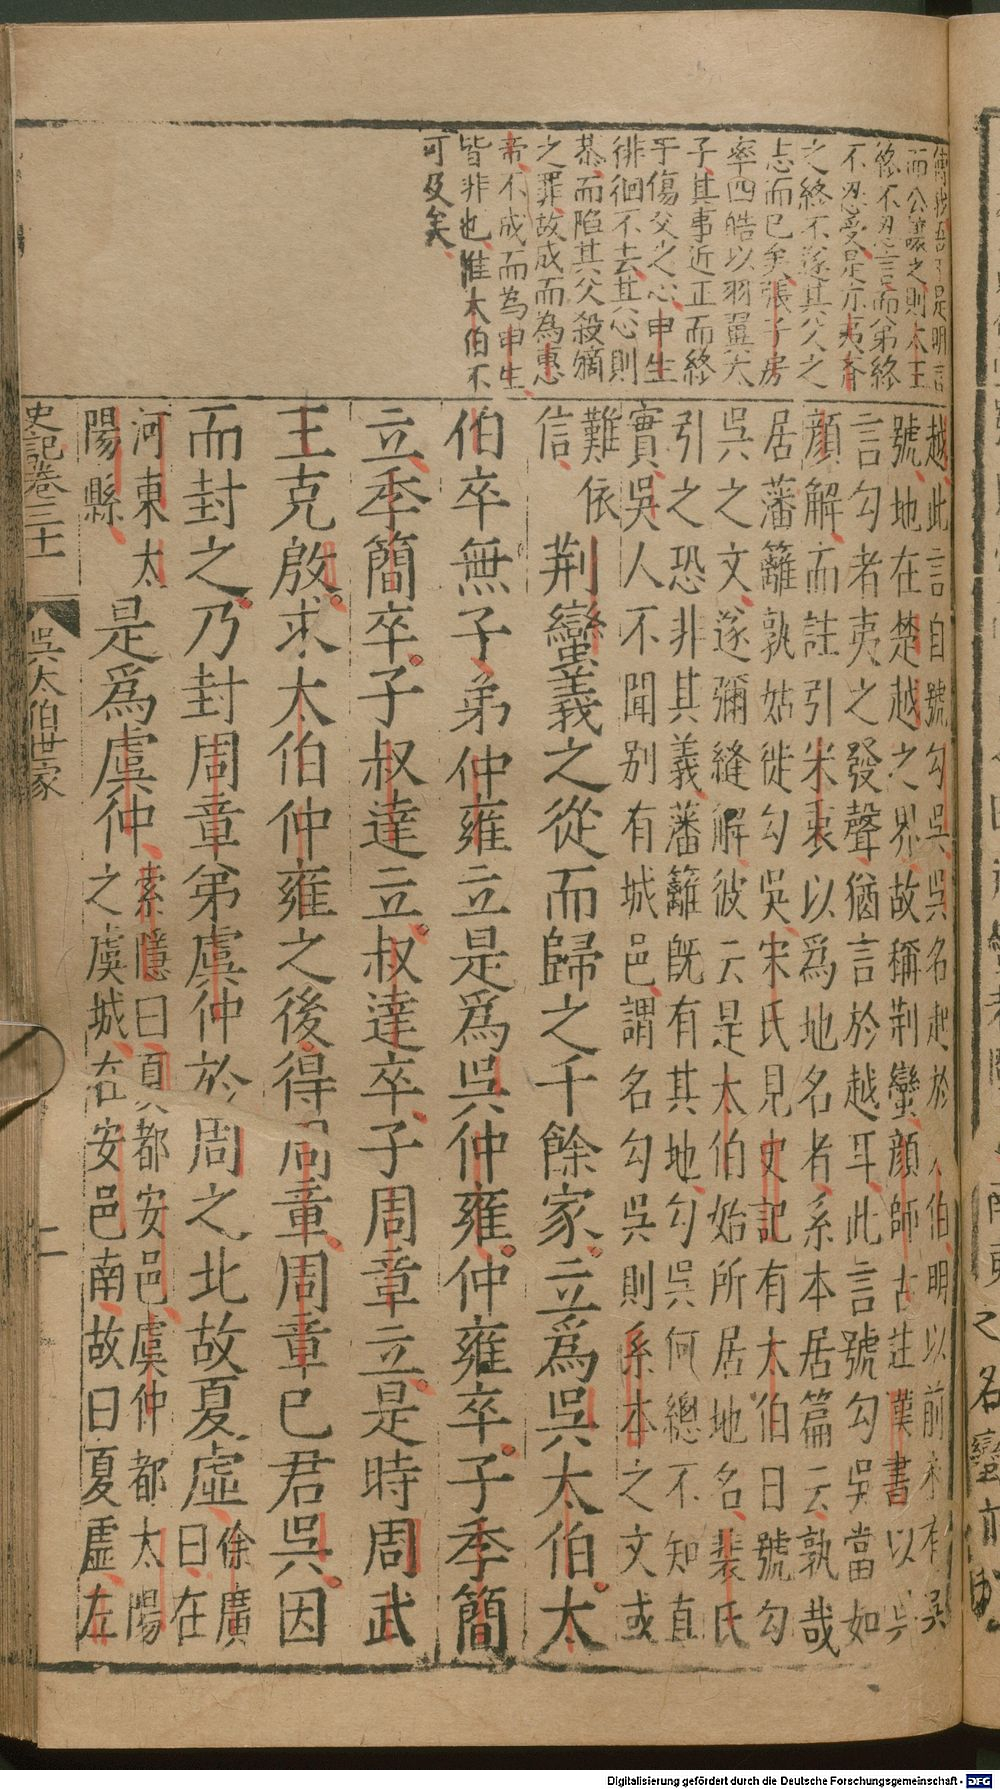 傳
而公讓之則太王
終不忍言而弟終
不忍受是亦夷齊
之終不遂其父之
志而已矣張子房
率四皓以羽翼太
子其事近正而終
于傷父之心申生
徘徊不去其心則
恭而陷其父殺嫡
之罪故成而為惠
帝不成而為申生
皆非也惟太伯不
可及矣
越此言自號勾吳吳名起於太伯明以前未有吳
號地在楚越之界故稱荆蠻顏師古註漢書以吳
言勾者夷之發聲猶言於越耳此言號勾吳當如
顏解而註引宋衷以爲地名者系本居篇云孰哉
居藩籬孰姑徙勾吳宋氏見史記有太伯自號勾
吳之文遂彌縫解彼云是太伯始所居地名裴氏
引之恐非其義藩籬既有其地勾吳何總不知直
實吳人不聞別有城邑謂名勾吳則系本之文或
難依
信
荆蠻義之從而歸之千餘家立爲吳太伯太
伯卒無子弟仲雍立是爲吳仲雍仲雍卒子季簡
立季簡卒子叔達立叔達卒子周章立是時周武
王克殷求太伯仲雍之後得周章周章已君吳因
而封之乃封周章弟虞仲於周之北故夏虛徐廣
曰在
河東太
陽縣
是爲虞仲索隱曰夏都安邑虞仲都太陽
之虞城在安邑南故曰夏虛左
史記卷三十一
吳太伯世家
二
Digitalisierung gefördert durch die Deutsche Forschungsgemeinschaft - DFG